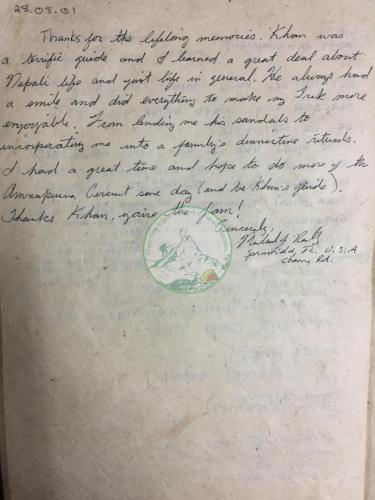 28.08.01
Thanks for the lifelong memories. Khan was
a terrific guide and I learned a great deal about
Nepali life and just life in general. He always had
a smile and did everything to make my Trek more
enjoyable. From lending me his sandals to
incorporating me into a family's dinnertime rituals.
I had a great time and hope to do more of the
Annapurna Circuit some day (and be Khan's guide).
Thanks Khan, you're the man!
Sincerely,
U.S.A
Cherry Rd.